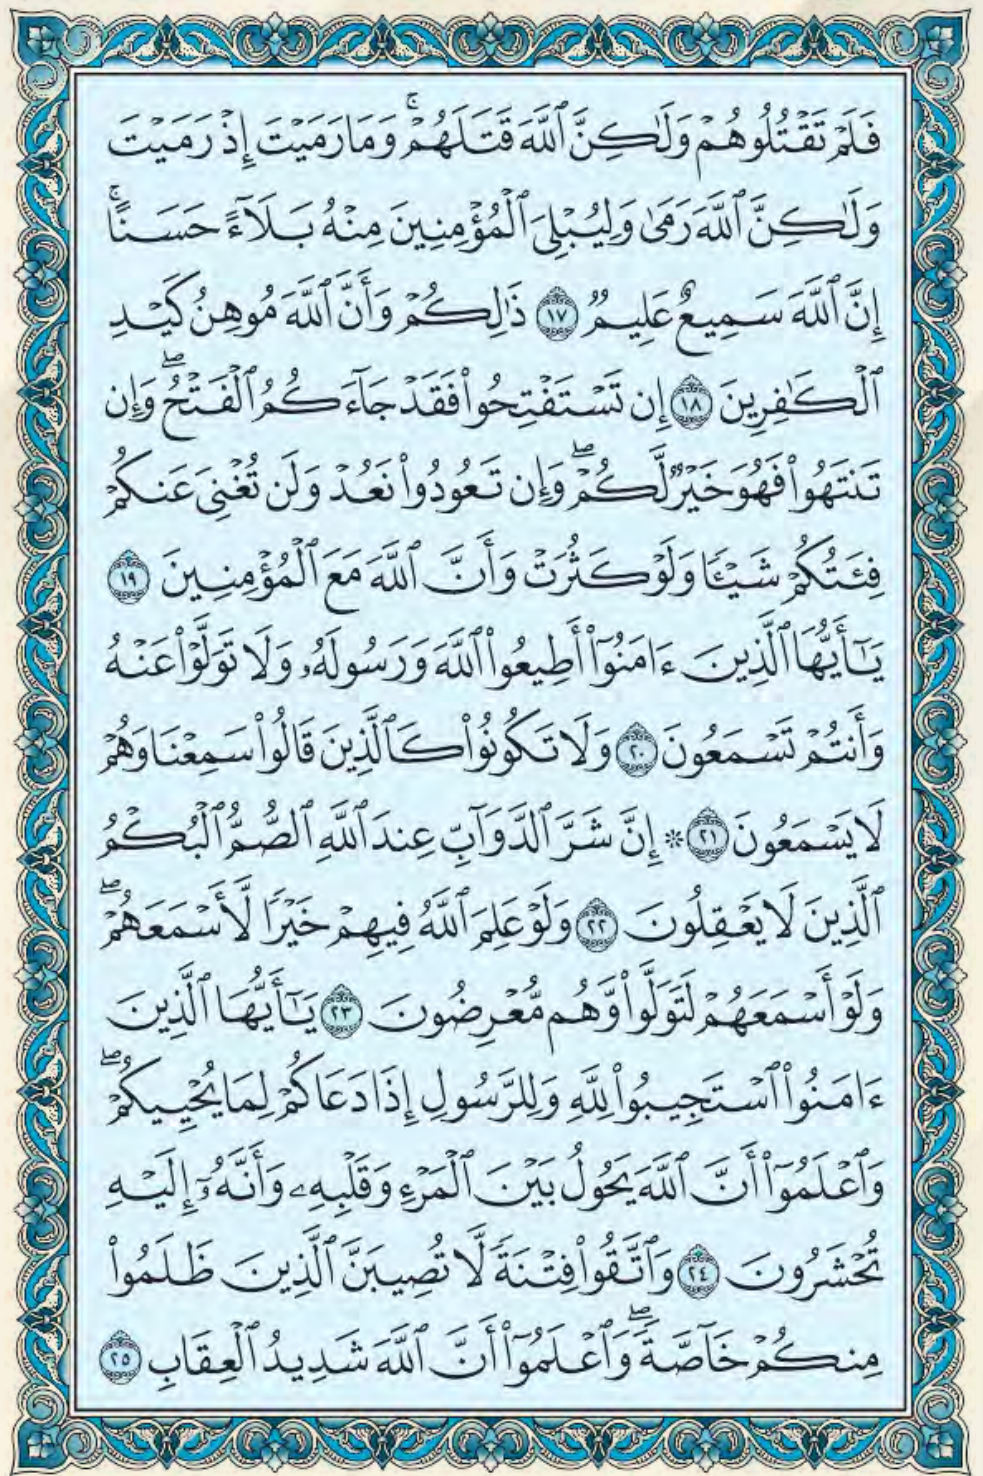 فَلَمۡ تَقۡتُلُوهُمۡ وَلَٰكِنَّ ٱللَّهَ قَتَلَهُمۡۚ وَمَا رَمَيۡتَ إِذۡ رَمَيۡتَ
وَلَٰكِنَّ ٱللَّهَ رَمَىٰ وَلِيُبۡلِيَ ٱلۡمُؤۡمِنِينَ مِنۡهُ بَلَآءً حَسَنًاۚ
إِنَّ ٱللَّهَ سَمِيعٌ عَلِيمٌ ١٧ ذَٰلِكُمۡ وَأَنَّ ٱللَّهَ مُوهِنُ كَيۡدِ
ٱلۡكَٰفِرِينَ ١٨ إِن تَسۡتَفۡتِحُواْ فَقَدۡ جَآءَكُمُ ٱلۡفَتۡحُۖ وَإِن
تَنتَهُواْ فَهُوَ خَيۡرٌ لَّكُمۡۖ وَإِن تَعُودُواْ نَعُدۡ وَلَن تُغۡنِيَ عَنكُمۡ
فِئَتُكُمۡ شَيۡـٔٗا وَلَوۡ كَثُرَتۡ وَأَنَّ ٱللَّهَ مَعَ ٱلۡمُؤۡمِنِينَ ١٩
يَٰٓأَيُّهَا ٱلَّذِينَ ءَامَنُوٓاْ أَطِيعُواْ ٱللَّهَ وَرَسُولَهُۥ وَلَا تَوَلَّوۡاْ عَنۡهُ
وَأَنتُمۡ تَسۡمَعُونَ ٢٠ وَلَا تَكُونُواْ كَٱلَّذِينَ قَالُواْ سَمِعۡنَا وَهُمۡ
لَا يَسۡمَعُونَ ٢١ ۞ إِنَّ شَرَّ ٱلدَّوَآبِّ عِندَ ٱللَّهِ ٱلصُّمُّ ٱلۡبُكۡمُ
ٱلَّذِينَ لَا يَعۡقِلُونَ ٢٢ وَلَوۡ عَلِمَ ٱللَّهُ فِيهِمۡ خَيۡرٗا لَّأَسۡمَعَهُمۡۖ
وَلَوۡ أَسۡمَعَهُمۡ لَتَوَلَّواْ وَّهُم مُّعۡرِضُونَ ٢٣ يَٰٓأَيُّهَا ٱلَّذِينَ
ءَامَنُواْ ٱسۡتَجِيبُواْ لِلَّهِ وَلِلرَّسُولِ إِذَا دَعَاكُمۡ لِمَا يُحۡيِيكُمۡۖ
وَٱعۡلَمُوٓاْ أَنَّ ٱللَّهَ يَحُولُ بَيۡنَ ٱلۡمَرۡءِ وَقَلۡبِهِۦ وَأَنَّهُۥٓ إِلَيۡهِ
تُحۡشَرُونَ ٢٤ وَٱتَّقُواْ فِتۡنَةٗ لَّا تُصِيبَنَّ ٱلَّذِينَ ظَلَمُواْ
مِنكُمۡ خَآصَّةٗۖ وَٱعۡلَمُوٓاْ أَنَّ ٱللَّهَ شَدِيدُ ٱلۡعِقَابِ ٢٥